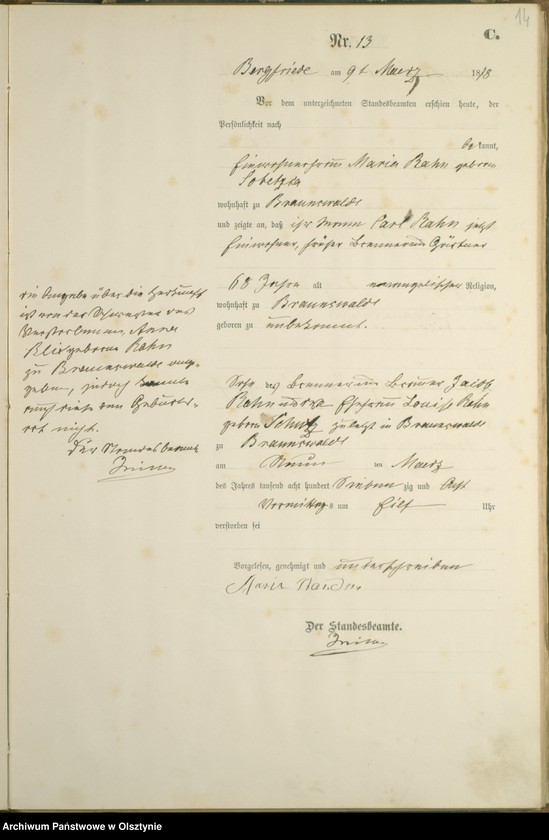 14
C.
Nr. 13
Bergfriede am 9t Maerz 1878
Vor dem unterzeichneten Standesbeamten erschien heute, der
Persönlichkeit nach
bekannt,
Einwohnerfrau Maria Rahn geborne
wohnhaft zu Braunswalde
und zeigte an, daß ihr Mann Carl Rahn jetzt
Einwohner, früher
68 Jahre alt evangelischer Religion,
wohnhaft zu Braunswalde
geboren zu unbekannt.
Sohn des Jacob
Rahn und Ehefrau Louise Rahn
geborne Schulz zuletzt in Braunswalde
zu Braunswalde
am Neun ten Maerz
des Jahres tausend acht hundert Sieben zig und Acht
Vormittags um Eilf Uhr
verstorben sei
Vorgelesen, genehmigt und unterschrieben
Der Standesbeamte.
die Angabe über die Herkunft
ist von der Schwester des
Verstorbenen, Anna
geborne Rahn
zu Braunswalde ange-
geben, jedoch kannte
auch diese den Geburts-
ort nicht.
Der Standesbeamte
Archiwum Państwowe w Olsztynie